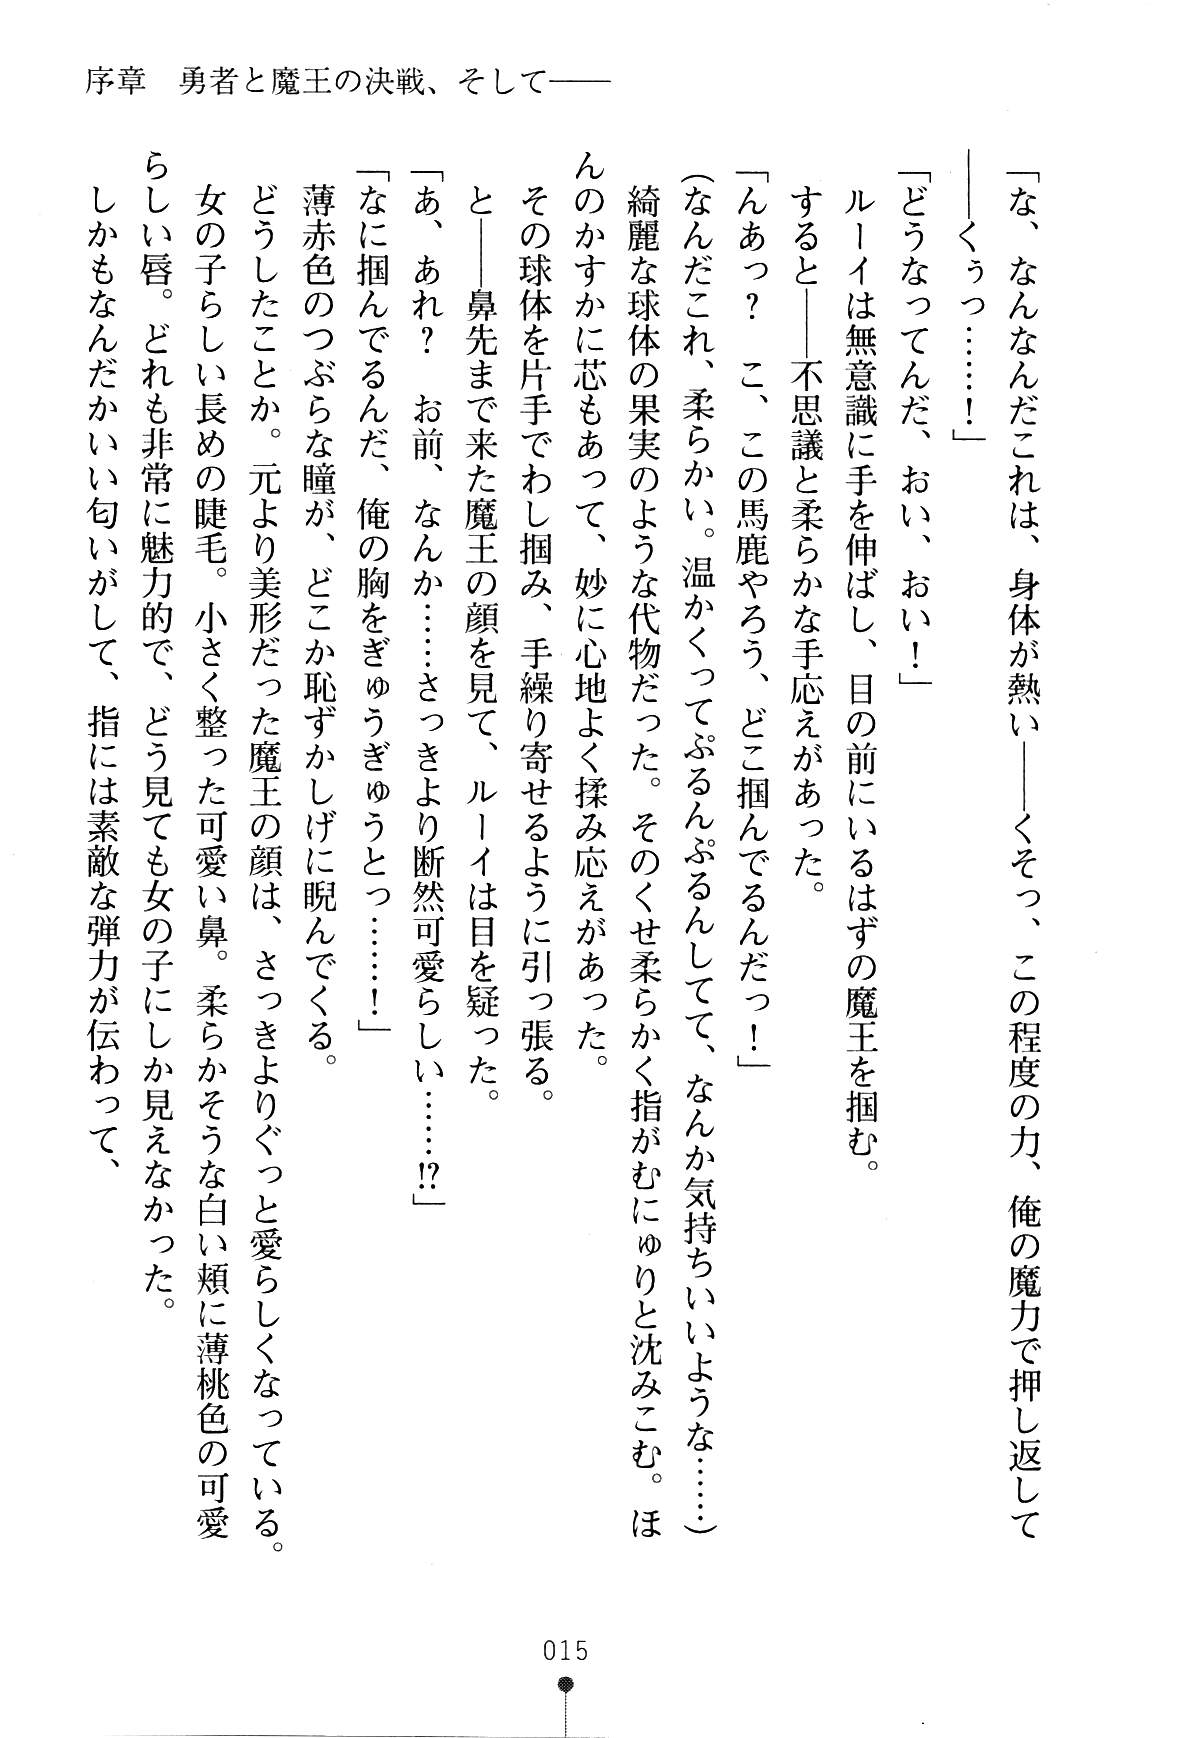 序章　勇者と魔王の決戦、そして――
「な、なんなんだこれは、身体が熱い――くそっ、この程度の力、俺の魔力で押し返して
――くぅっ……！」
「どうなってんだ、おい、おい！」
　ルーイは無意識に手を伸ばし、目の前にいるはずの魔王を掴む。
　すると――不思議と柔らかな手応えがあった。
「んあっ？　こ、この馬鹿やろう、どこ掴んでるんだっ！」
（なんだこれ、柔らかい。温かくってぷるんぷるんしてて、なんか気持ちいいような……）
　綺麗な球体の果実のような代物だった。そのくせ柔らかく指がむにゅりと沈みこむ。ほ
んのかすかに芯もあって、妙に心地よく揉み応えがあった。
　その球体を片手でわし掴み、手繰り寄せるように引っ張る。
　と――鼻先まで来た魔王の顔を見て、ルーイは目を疑った。
「あ、あれ？　お前、なんか……さっきより断然可愛らしい……!?」
「なに掴んでるんだ、俺の胸をぎゅうぎゅうとっ……！」
　薄赤色のつぶらな瞳が、どこか恥ずかしげに睨んでくる。
　どうしたことか。元より美形だった魔王の顔は、さっきよりぐっと愛らしくなっている。
　女の子らしい長めの睫毛。小さく整った可愛い鼻。柔らかそうな白い頬に薄桃色の可愛
らしい唇。どれも非常に魅力的で、どう見ても女の子にしか見えなかった。
　しかもなんだかいい匂いがして、指には素敵な弾力が伝わって、
015